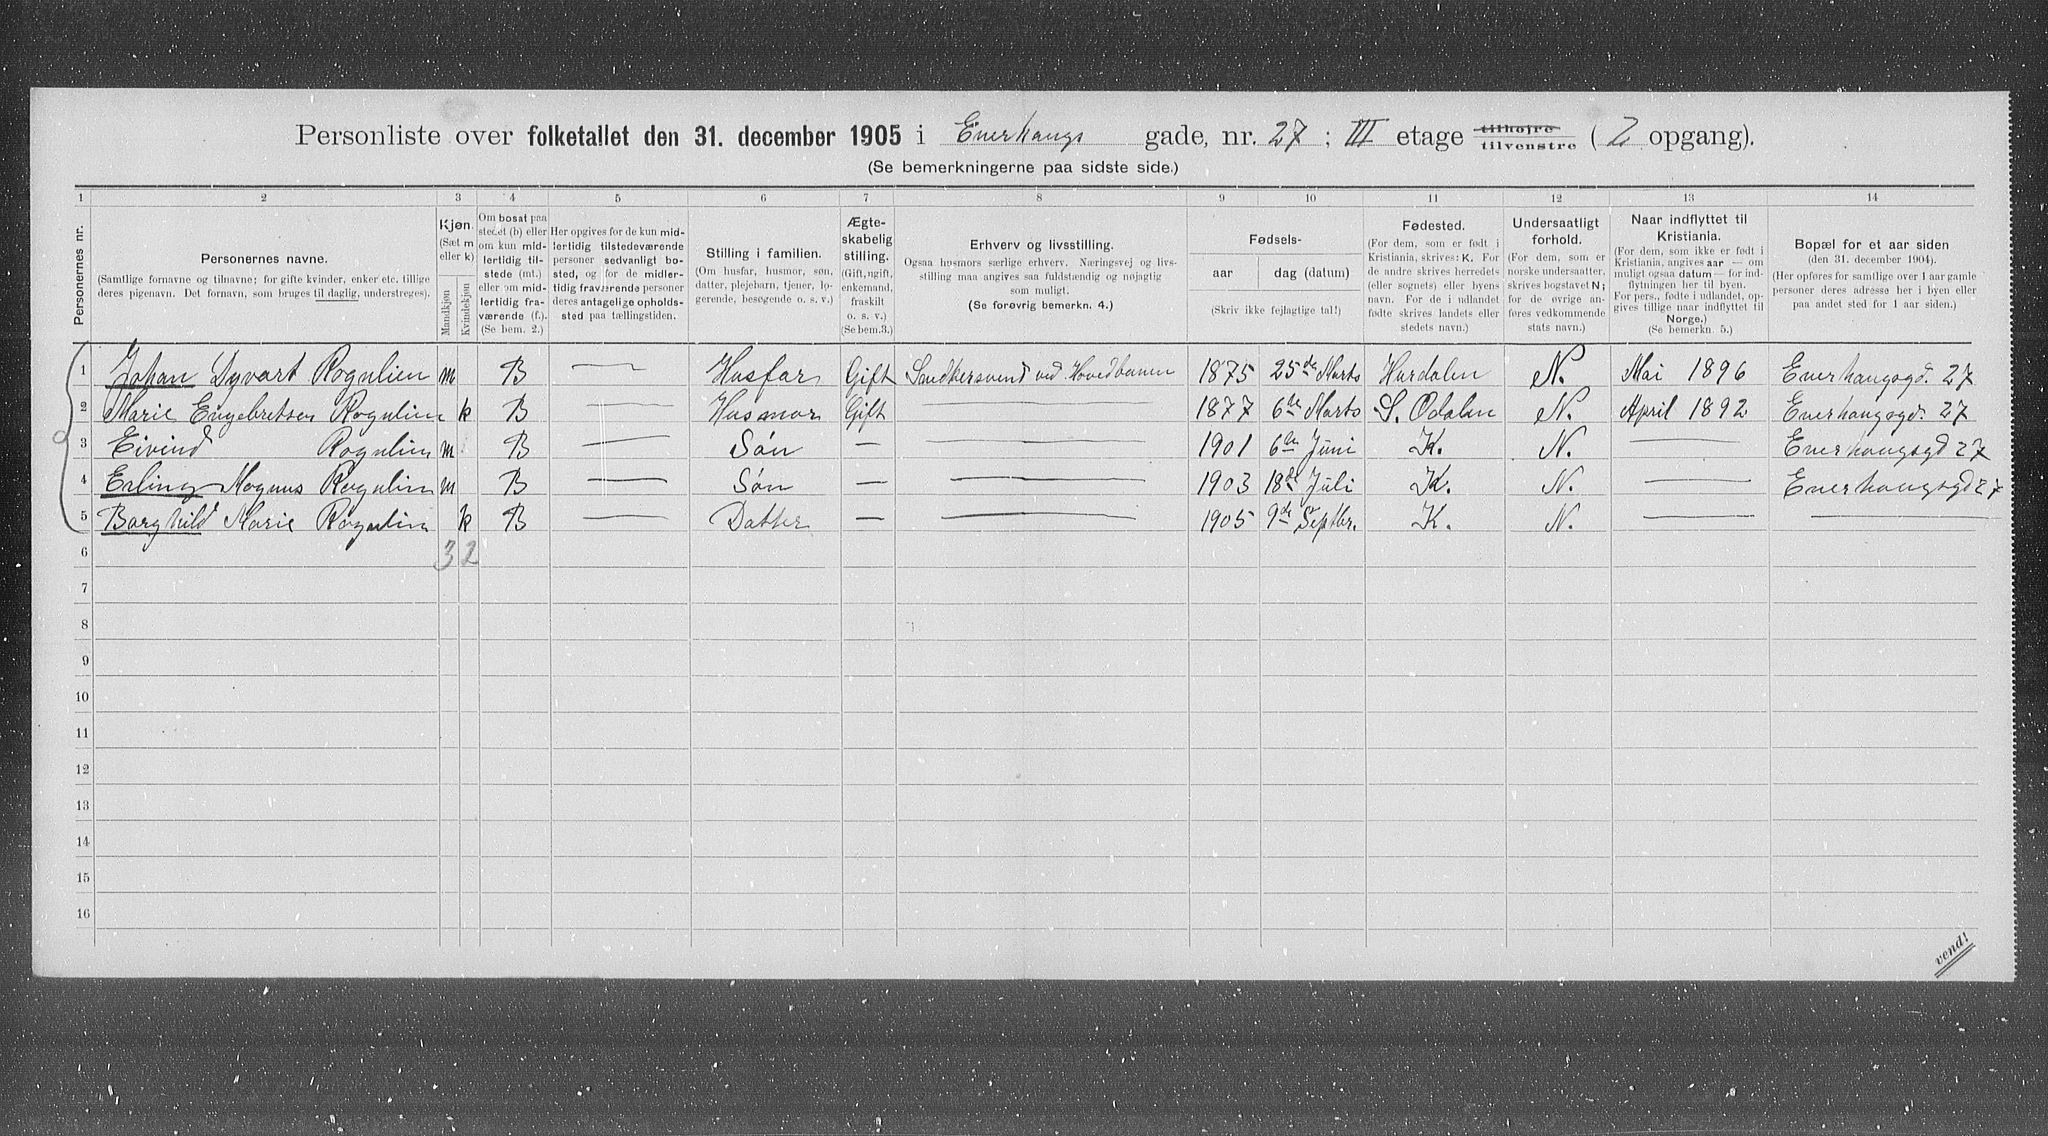 Personliste over folketallet den 31. december 1905 i Enerhaugs gade, nr. 27 ; III etage tilhøjre tilvenstre ( 2 opgang).
(Se bemerkningerne paa sidste side.)
1 2 3 4 5 6 7 8 9 10 11 12 13 14
Personernes nr.
Personernes navne.
(Samtlige fornavne og tilnavne; for gifte kvinder, enker etc. tillige
deres pigenavn. Det fornavn, som bruges til daglig, understreges).
Kjøn.
(Sæt m
eller k)
Mandkjøn
Kvindekjøn
Om bosat paa
stedet (b) eller
om kun mid-
lertidig til-
stede (mt.)
eller om mid-
lertidig fra-
værende (f.).
(Se bem. 2.)
Her opgives for de kun mid-
lertidig tilstedeværende
personer sedvanligt bo-
sted, og for de midler-
tidig fraværende personer
deres antagelige opholds-
sted paa tællingstiden.
Stilling i familien.
(Om husfar, husmor, søn,
datter, plejebarn, tjener, lo-
gerende, besøgende o. s. v.)
Ægte-
skabelig
stilling.
(Gift, ugift,
enkemand,
fraskilt
o. s. v.)
(Se bem.3.)
Erhverv og livsstilling.
Ogsaa husmors særlige erhverv. Næringsvej og livs-
stilling maa angives saa fuldstændig og nøjagtig
som muligt.
(Se forøvrig bemerkn. 4.)
Fødsels-
aar dag (datum)
(Skriv ikke fejlagtige tal!)
Fødested.
(For dem, som er født i
Kristiania, skrives: K. For
de andre skrives herredets
(eller sognets) eller byens
navn. For de i udlandet
fødte skrives landets eller
stedets navn.)
Undersaatligt
forhold.
(For dem, som er
norske undersaatter,
skrives bogstavet N;
for de øvrige an-
føres vedkommende
stats navn.)
Naar indflyttet til
Kristiania.
(For dem, som ikke er født i
Kristiania, angives aar — om
muligt ogsaa datum — for ind-
flytningen her til byen.
For pers., fødte i udlandet, op-
gives tillige naar indflyttet til
Norge.)
(Se bemerkn. 5.)
Bopæl for et aar siden
(den 31. december 1904).
(Her opføres for samtlige over 1 aar gamle
personer deres adresse her i byen eller
paa andet sted for 1 aar siden.)
1 Johan Syvart Rognlien m B — Husfar Gift Snedkersvend ved Hovedbanen 1875 25de Marts Hurdalen N. Mai 1896 Enerhaugsgd. 27
2 Marie Engebretsen Rognlien k B — Husmor Gift — 1877 6te Marts S. Odalen N. April 1892 Enerhaugsgd. 27
3 Eivind Rognlien m B — Søn — — 1901 6te Juni K. N. — Enerhaugsgd 27
4 Erling Magnus Rognlien m B — Søn — — 1903 18de Juli K. N. — Enerhaugsgd 27
5 Borghild Marie Rognlien k B — Datter — — 1905 9de Septbr. K. N. — —
6 3 2
7
8
9
10
11
12
13
14
15
16
vend!